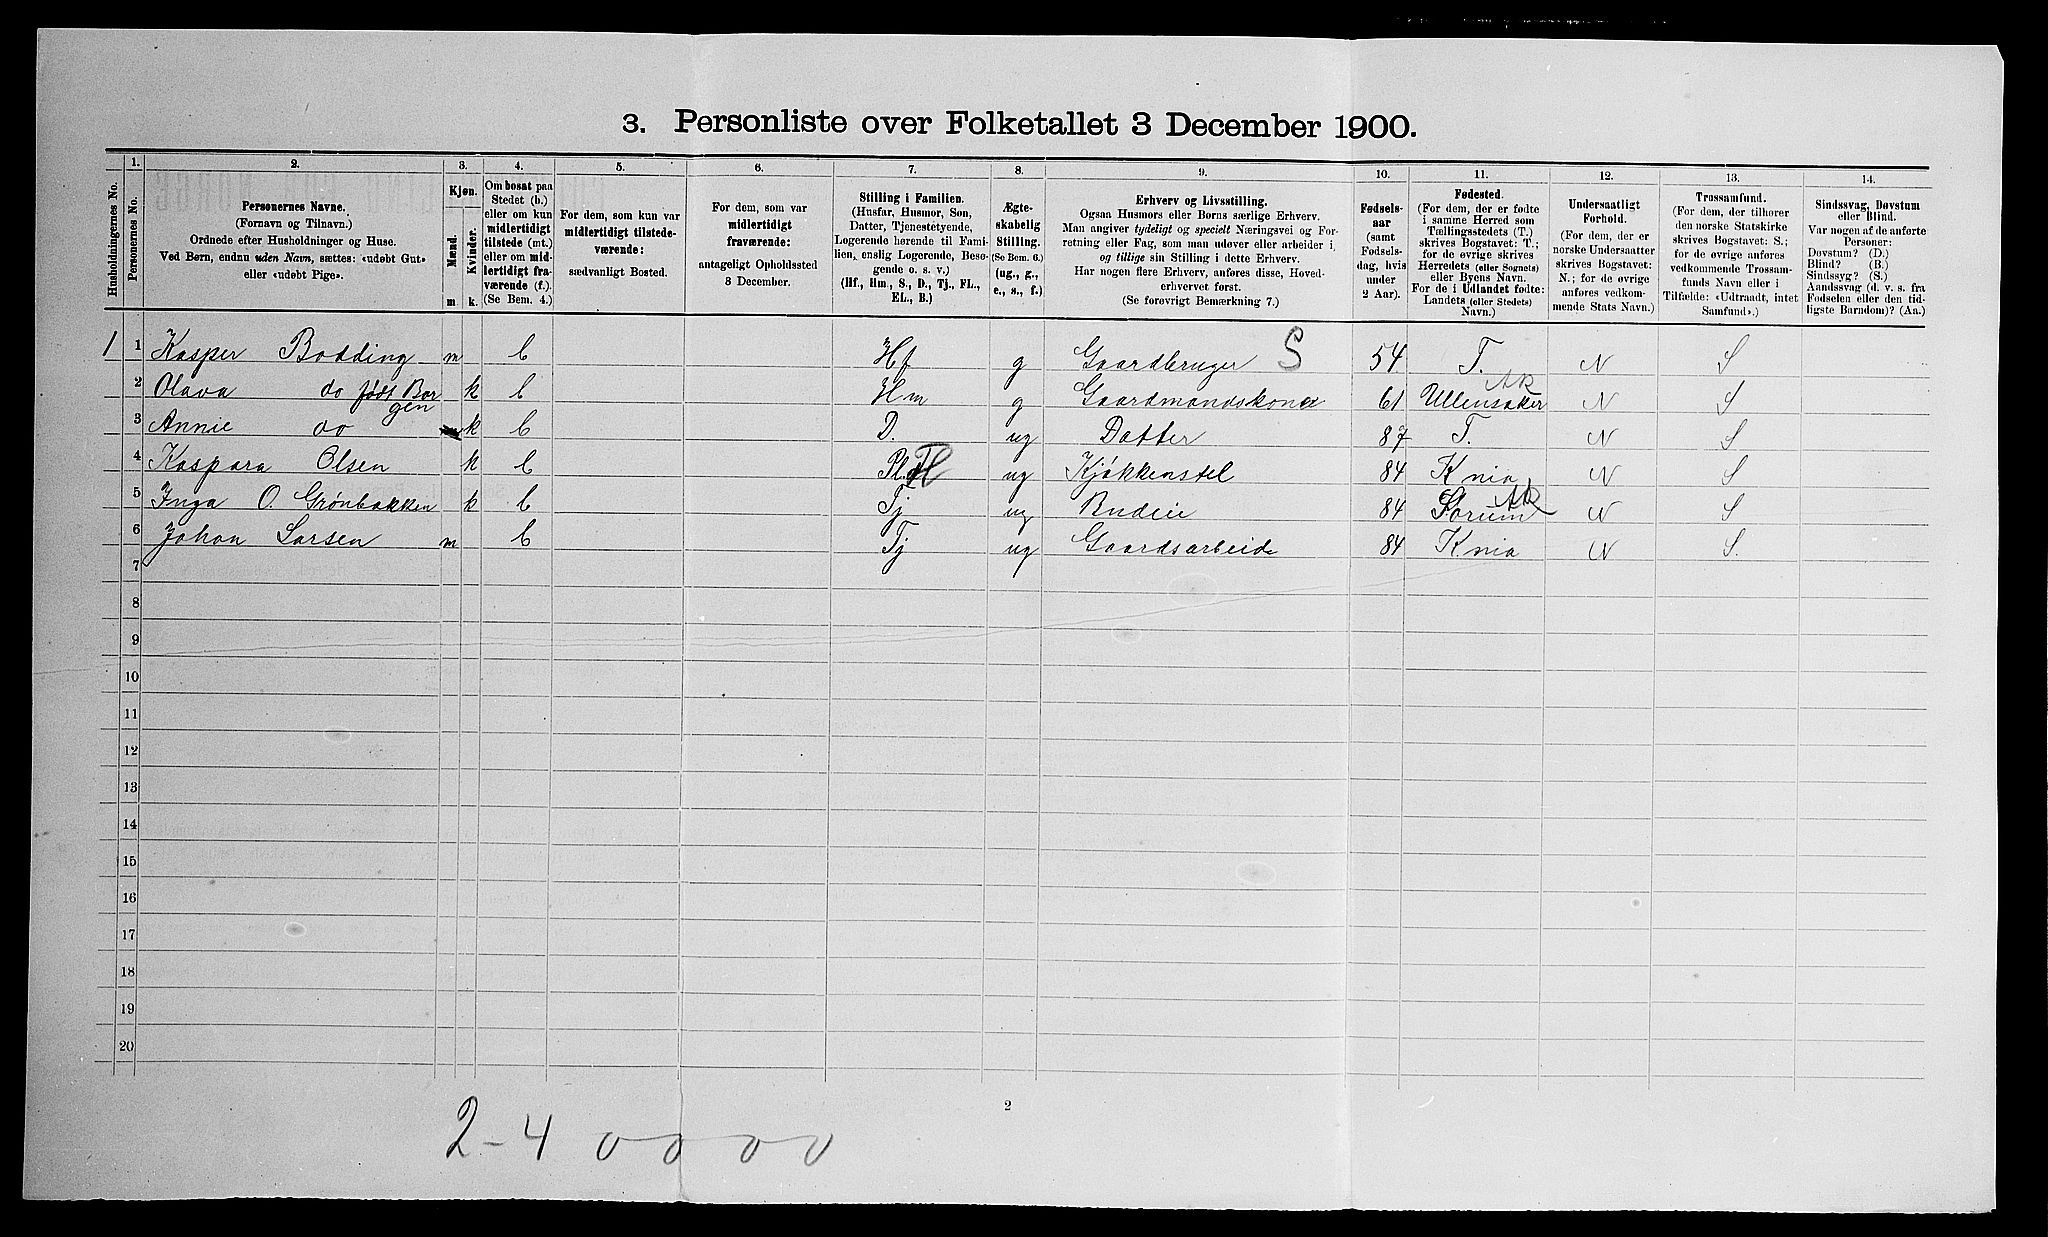 3. Personliste over Folketallet 3 December 1900.
Husholdningernes No.
1.
Personernes No.
2.
Personernes Navne.
(Fornavn og Tilnavn.)
Ordnede efter Husholdninger og Huse.
Ved Børn, endnu uden Navn, sættes: «udøbt Gut»
eller «udøbt Pige».
3.
Kjøn.
Mænd.
Kvinder.
m.
k.
4.
Om bosat paa
Stedet (b.)
eller om kun
midlertidigt
tilstede (mt.)
eller om mid-
lertidigt fra-
værende (f.)
(Se Bem. 4.)
5.
For dem, som kun var
midlertidigt tilstede-
værende:
sædvanligt Bosted.
6.
For dem, som var
midlertidigt
fraværende:
antageligt Opholdssted
3 December.
7.
Stilling i Familien.
(Husfar, Husmor, Søn,
Datter, Tjenestetyende,
Logerende hørende til Fami-
lien, enslig Logerende, Besø-
gende o. s. v.)
(Hf., Hm., S., D., Tj., FL.,
EL., B.)
8.
Ægte-
skabelig
Stilling.
(Se Bem. 6.)
(ug., g.,
e., s., f.)
9.
Erhverv og Livsstilling.
Ogsaa Husmors eller Børns særlige Erhverv.
Man angiver tydeligt og specielt Næringsvei og For-
retning eller Fag, som man udøver eller arbeider i,
og tillige sin Stilling i dette Erhverv.
Har nogen flere Erhverv, anføres disse, Hoved-
erhvervet først.
(Se forøvrigt Bemærkning 7.)
10.
Fødsels-
aar
(samt
Fødsels-
dag, hvis
under
2 Aar).
11.
Fødested.
(For dem, der er fødte
i samme Herred som
Tællingsstedets (T.)
skrives Bogstavet: T.;
for de øvrige skrives
Herredets (eller Sognets)
eller Byens Navn.
For de i Udlandet fødte:
Landets (eller Stedets)
Navn.)
12.
Undersaatligt
Forhold.
(For dem, der er
norske Undersaatter
skrives Bogstavet:
N.; for de øvrige
anføres vedkom-
mende Stats Navn.)
13.
Trossamfund.
(For dem, der tilhører
den norske Statskirke
skrives Bogstavet: S.;
for de øvrige anføres
vedkommende Trossam-
funds Navn eller i
Tilfælde: «Udtraadt, intet
Samfund».)
14.
Sindssvag, Døvstum
eller Blind.
Var nogen af de anførte
Personer:
Døvstum? (D.)
Blind? (B.)
Sindssyg? (S.)
Aandssvag (d. v. s. fra
Fødselen eller den tid-
ligste Barndom)? (Aa.)
1 1 Kasper Bodding m b Hf g Gaardbruger S 54 T. N S
2 Olava do føds Bor k b Hm g Gaardmandskone 61 Ullensaker Ak N S
gen
3 Annie do k b D. ug Datter 87 T. N S
4 Kaspara Olsen k b Pl.d Fl ug Kjøkkenstel 84 Knia N S
5 Inga O. Grønbakken k b Tj ug Budeie 84 Sørum Ak N S
6 Johan Larsen m b Tj ug Gaardsarbeide 84 Knia N S.
7
8
9
10
11
12
13
14
15
16
17
18
19
20
2
2-4 0 0 0 0